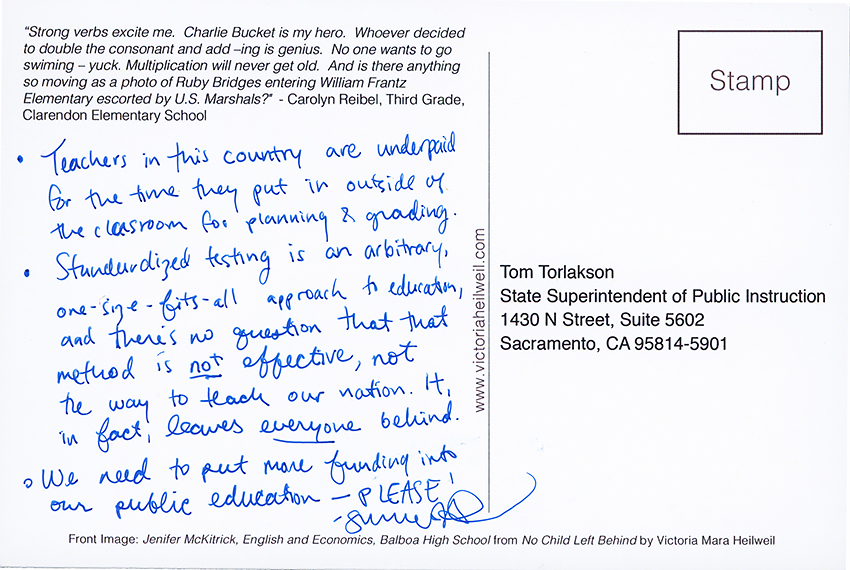 “Strong verbs excite me. Charlie Bucket is my hero. Whoever decided
to double the consonant and add –ing is genius. No one wants to go
swiming – yuck. Multiplication will never get old. And is there anything
so moving as a photo of Ruby Bridges entering William Frantz
Elementary escorted by U.S. Marshals?” - Carolyn Reibel, Third Grade,
Clarendon Elementary School
• Teachers in this country are underpaid
for the time they put in outside of
the classroom for planning & grading.
• Standardized testing is an arbitrary,
one-size-fits-all approach to education,
and there's no question that that
method is not effective, not
the way to teach our nation. It,
in fact, leaves everyone behind.
• We need to put more funding into
our public education – PLEASE!
www.victoriaheilweil.com
Stamp
Tom Torlakson
State Superintendent of Public Instruction
1430 N Street, Suite 5602
Sacramento, CA 95814-5901
Front Image: Jenifer McKitrick, English and Economics, Balboa High School from No Child Left Behind by Victoria Mara Heilweil